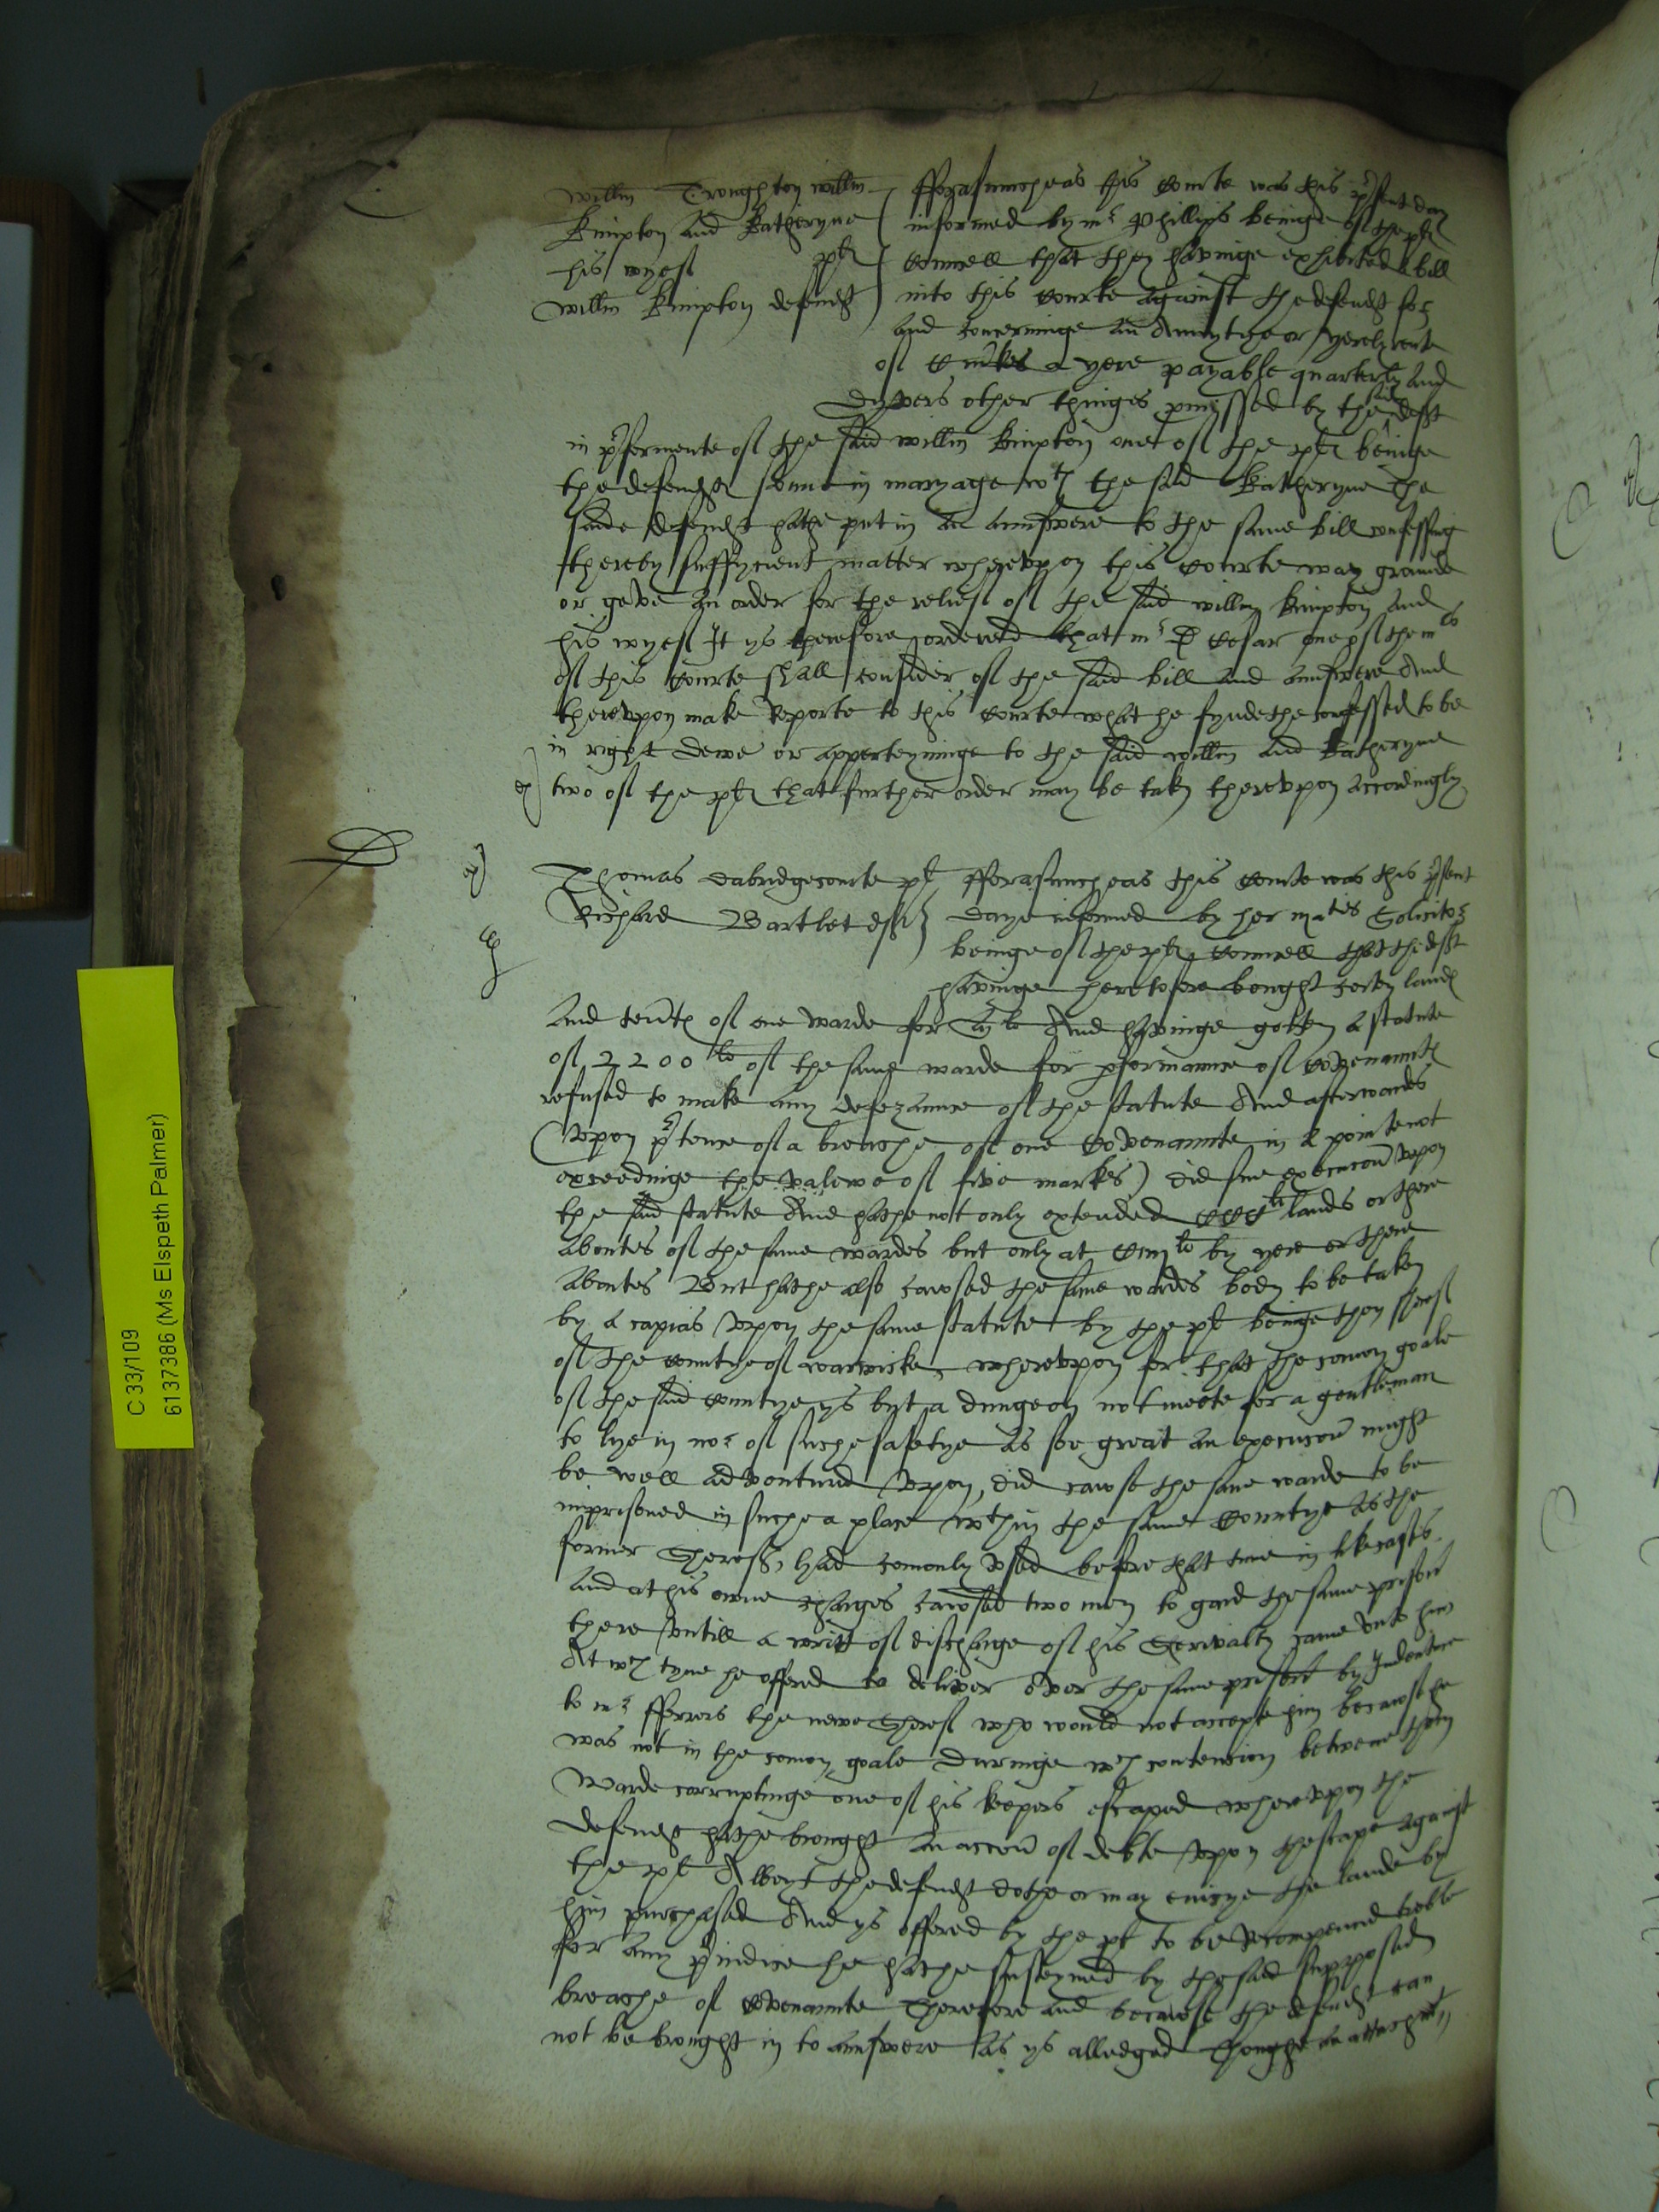 willm Troughton willm
Kimpton and Katheryne
his wyef plt
willm Kimpton defendt
fforasmuche as this Courte was this psent day
informed by mr Phillips beinge of the plt
Counsell that they havinge exhibited a bill
into this Courte against the defendt for
and concerninge an Annytye or yerely rente
of a yere payable quarterly and
Dyvers other thinges promyssed by the said deft
in pfermente of the said willm Kimpton one of the plt beinge
the defendt sonne in maryage wth the said Katheryne The
saide defendt hathe put in an aunswere to the same bill confessing
thereby suffycient matter wherevpon this Courte may graunte
or geve an order for the relief of the said willm Kimpton and
his wyef It ys therefore ordered that mr D Cesar one of the mrs
of this Courte shall consider of the said bill and aunswere And
therevpon make Reporte to this Courte what he fyndethe confessed to be
in right dewe or apperteyninge to the said willm and Katheryne
two of the plt that further order may be taken therevpon accordingly
Thomas dabridgecourte plt
Richard Bartlet deft
fforasmuche as this Courte was this psent
daye informed by her mates Solicitor
beinge of the plt Counsell that the deft
havinge heretofore bought certen landes
And tentes of one warde for And havinge gotten a statute
of 2200li of the same warde for pformaunce of Covenauntes
refused to make any defezaunce of the statute And afterwardes
(vpon ptence of a breache of one Covenaunte in a pointe not
exceedinge the valewe of five markes) did sue execucon vpon
the said statute And hathe not only extended CCCli lands or there
aboutes of the same wardes but only at by yere or there
aboutes But hathe also cawsed the same wardes body to be taken
by a capias vpon the same statute by the plt beinge then sheref
of the Countye of warwicke wherevpon for that the comon goale
of the said Countye ys but a dungeon not meete for a gentleman
to lye in nor of suche safetye as soe great an execucon might
be well adventured vpon, did cawse the same warde to be
imprisoned in suche a place wthin the same Countye as the
former Sherefs had comonly vsed before that time in like cases
and at his owne charges cawsed two men to gard the same prisoner
there vntill a writt of discharge of his Sherivalty came vnto him
At wch tyme he offered to deliver over the same prisoner by Indenture
to mr fferrers the newe Sheref who would not accepte him because he
was not in the comon goale Duringe wch contencion betwene them
Warde corruptinge one of his keepers escaped wherevpon the
defendt hathe brought an accon of debte vpon thescape against
the plt Albeyt the defendt dothe or may enioye the lande by
him purchased And ys offered by the plt to be recompenced treble
for any piudice he hathe susteyned by the said supposed
breache of Covenaunte Therefore and because the defendt can
not be brought in to aunswere as ys alledged thoughe an attachmt
C 33/109
6137386 (Ms Elspeth Palmer)